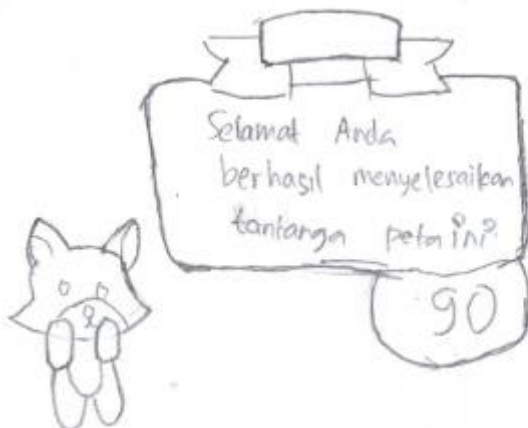 Selamat Anda
berhasil menyelesaikan
tantanga peta ini
90